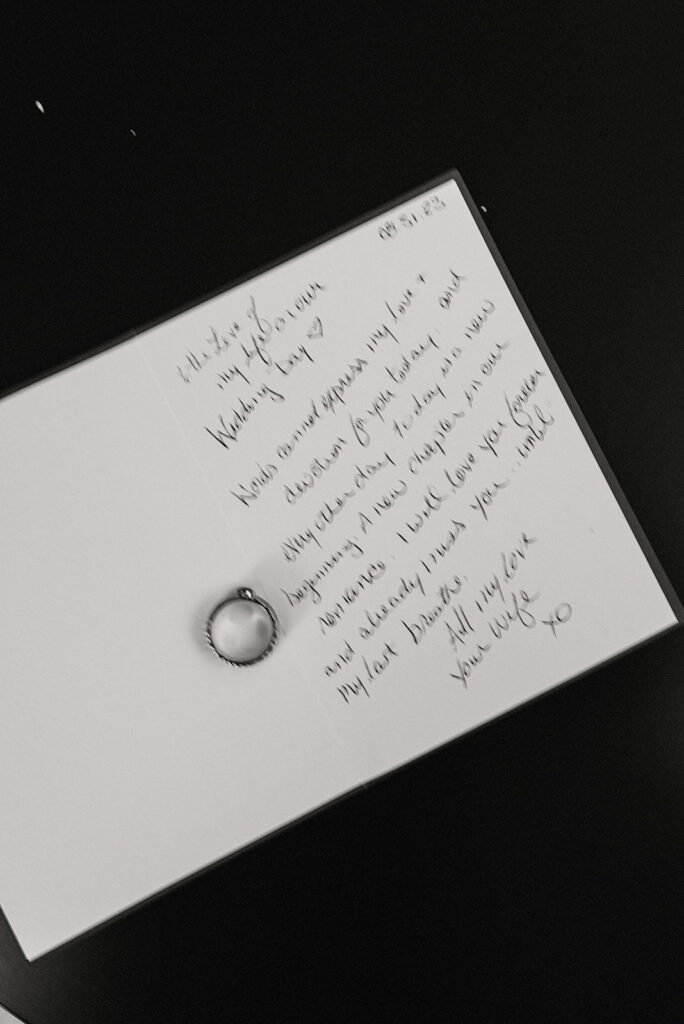 08.31.23
To the Love of
my life on our
Wedding Day ♡
Words cannot express my love +
devotion for you today.. and
every other day. Today is a new
beginning. A new chapter in our
romance. I will love you forever
and already miss you... until
my last breathe.
All my Love
Your Wife
XO